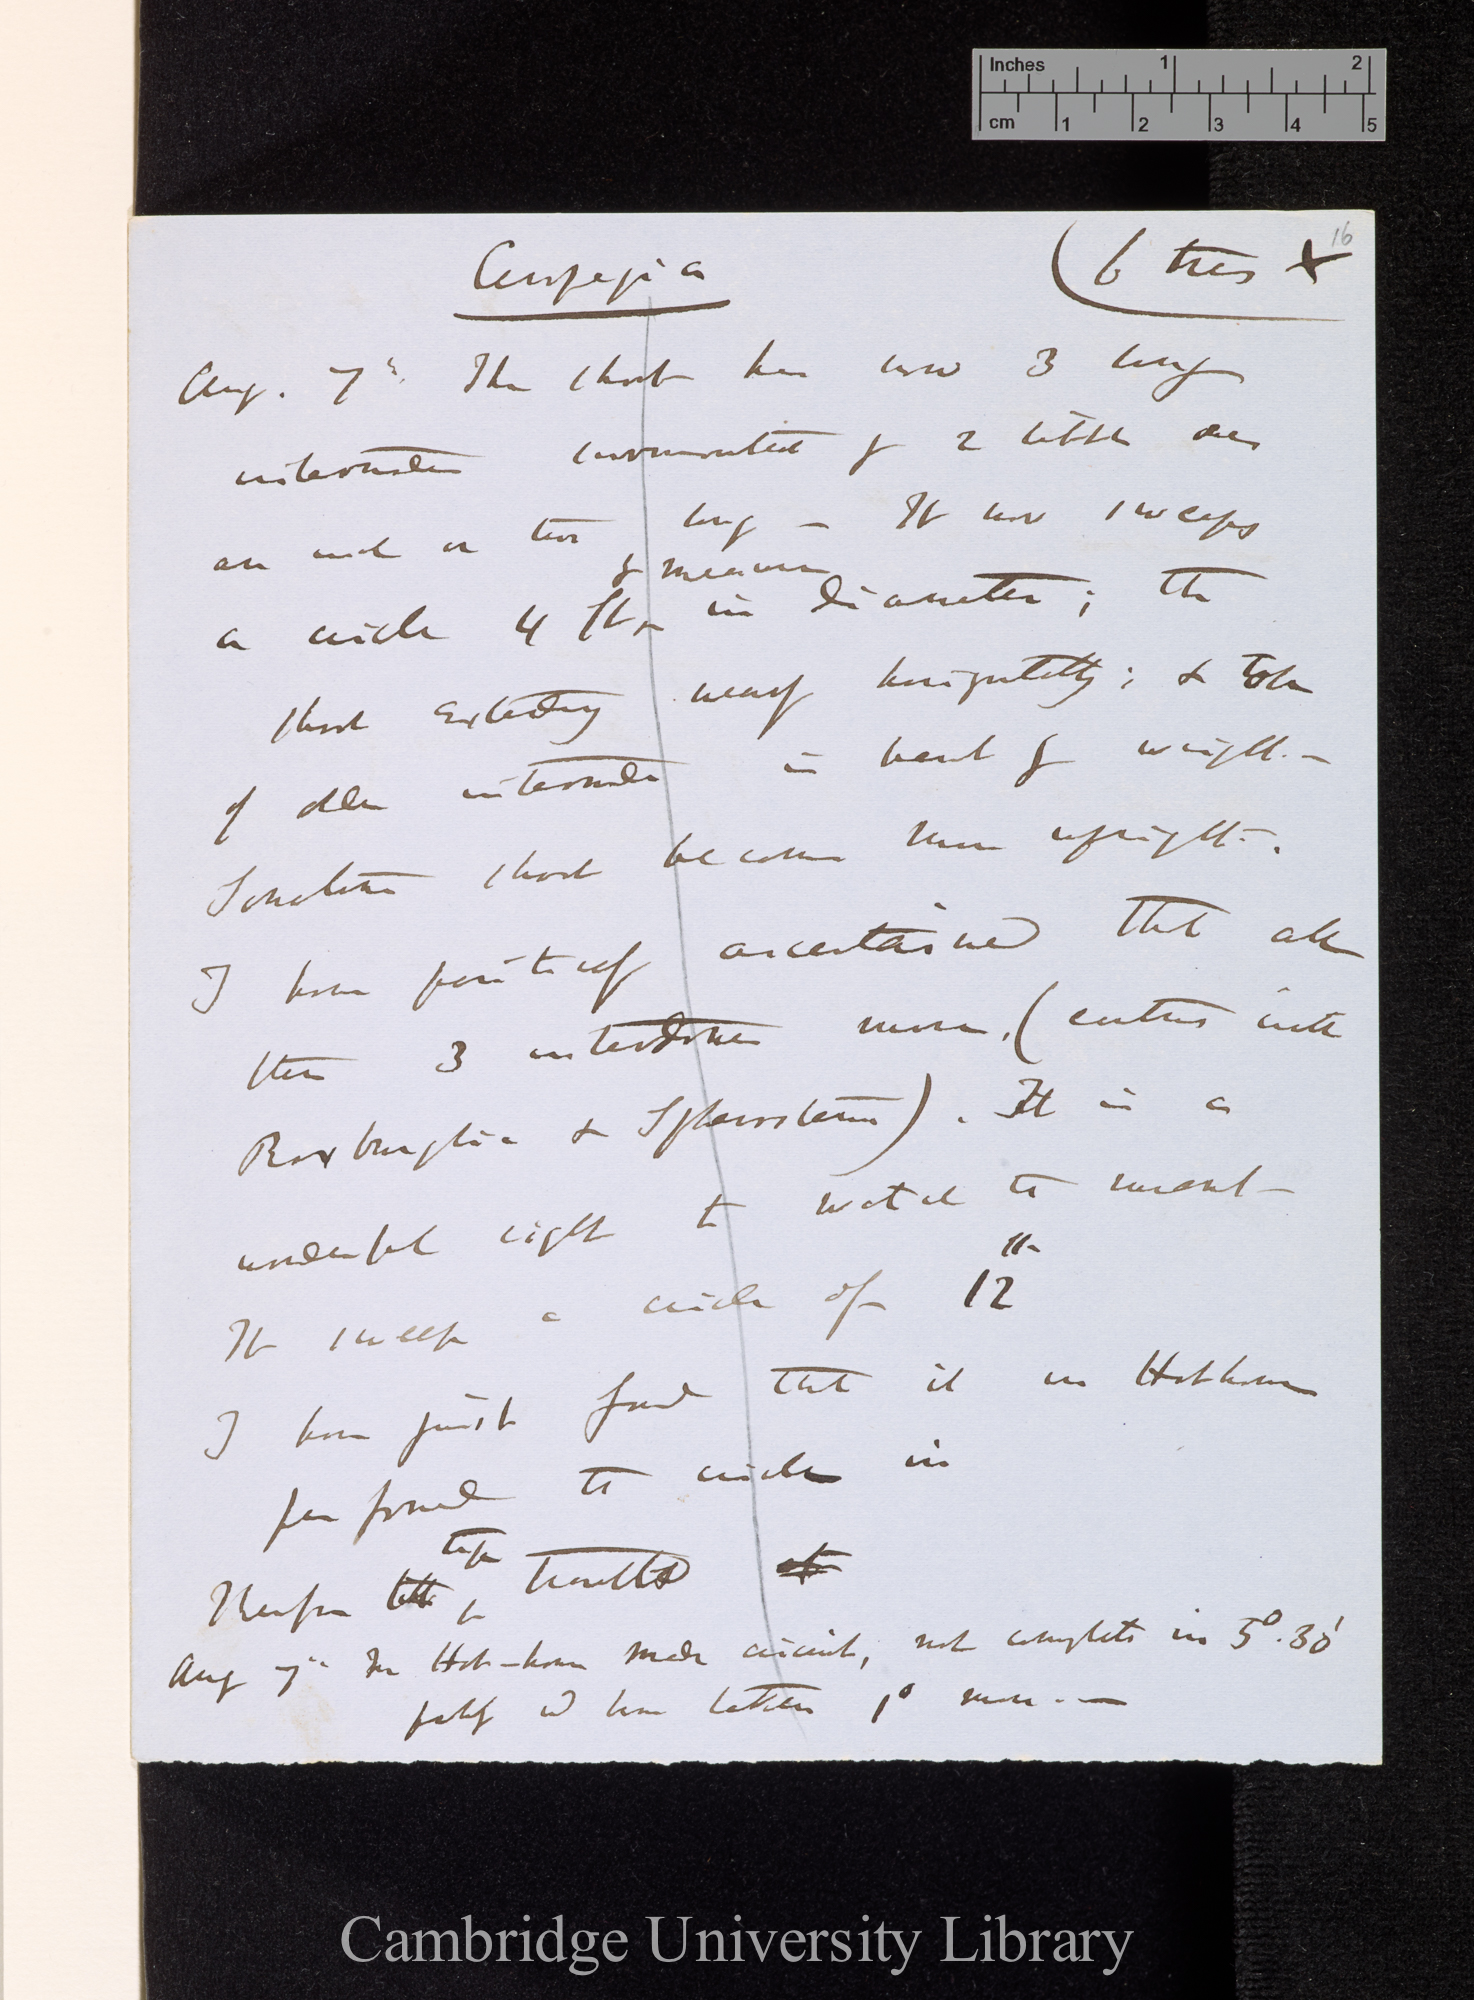 Inches 1 2
cm 1 2 3 4 5
16
Ceropegia (6 tres X
Aug. 7th. The shoot has now 3 long
internodes surmounted by 2 little ones
an inch or two long — It now sweeps
by measure
a circle 4 ft in diameter; the
shoot extending nearly horizontally; &
of older internodes is bent by weight. —
Sometimes shoot becomes more upright.
I have positively ascertained that all
these 3 internodes move. (contrast with
Roxburghia & Sphaerostema). It is a
wonderful sight to watch its movement —
It sweeps a circle of 12
I have just found that it in Hothouse
performed its circle in
tip
Therefore travelled
Aug 7th In Hot-house made circuit, not complete in 5° 30'
probably wd have taken 1° more. —
Cambridge University Library